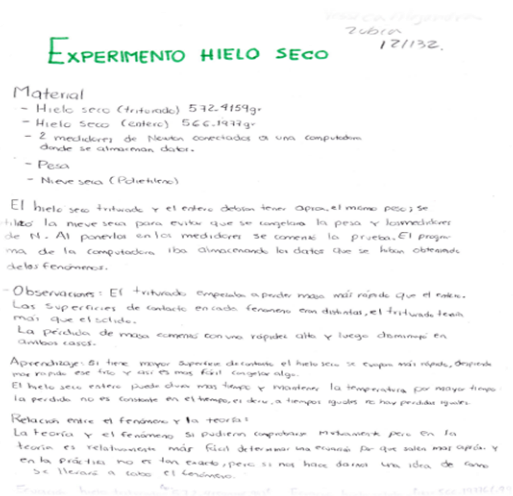 Zubia
12/132.
EXPERIMENTO HIELO SECO
Material
- Hielo seco (triturado) 572.4159gr
- Hielo seco (entero) 566.1977gr
- 2 medidores de Newton conectados a una computadora
donde se almacenan datos.
- Pesa
- Nieve seca (Polietileno)
El hielo seco triturado y el entero debían tener aprox. el mismo peso; se
utilizó la nieve seca para evitar que se congelara la pesa y los medidores
de N. Al ponerlos en los medidores se comenzó la prueba. El progra-
ma de la computadora iba almacenando los datos que se iban obteniendo
de los fenómenos.
- Observaciones: El triturado empezaba a perder masa más rápido que el entero.
Las superficies de contacto en cada fenómeno eran distintas, el triturado tenía
más que el sólido.
La pérdida de masa comenzó con una rapidez alta y luego disminuyó en
ambos casos.
Aprendizaje: Si tiene mayor superficie de contacto el hielo seco se evapora más rápido, desprende
por rápido ese frío y así es más fácil congelar algo.
El hielo seco entero puede durar más tiempo y mantener la temperatura por mayor tiempo
la perdida no es constante en el tiempo, es decir, a tiempos iguales no hay perdidas iguales.
Relación entre el fenómeno y la teoría:
La teoría y el fenómeno si pudieron comprobarse mutuamente pero en la
teoría es relativamente más fácil determinar una ecuación por que salen más aprox. y
en la práctica no es tan exacto, pero si nos hace darnos una idea de como
se llevará a cabo el fenómeno.